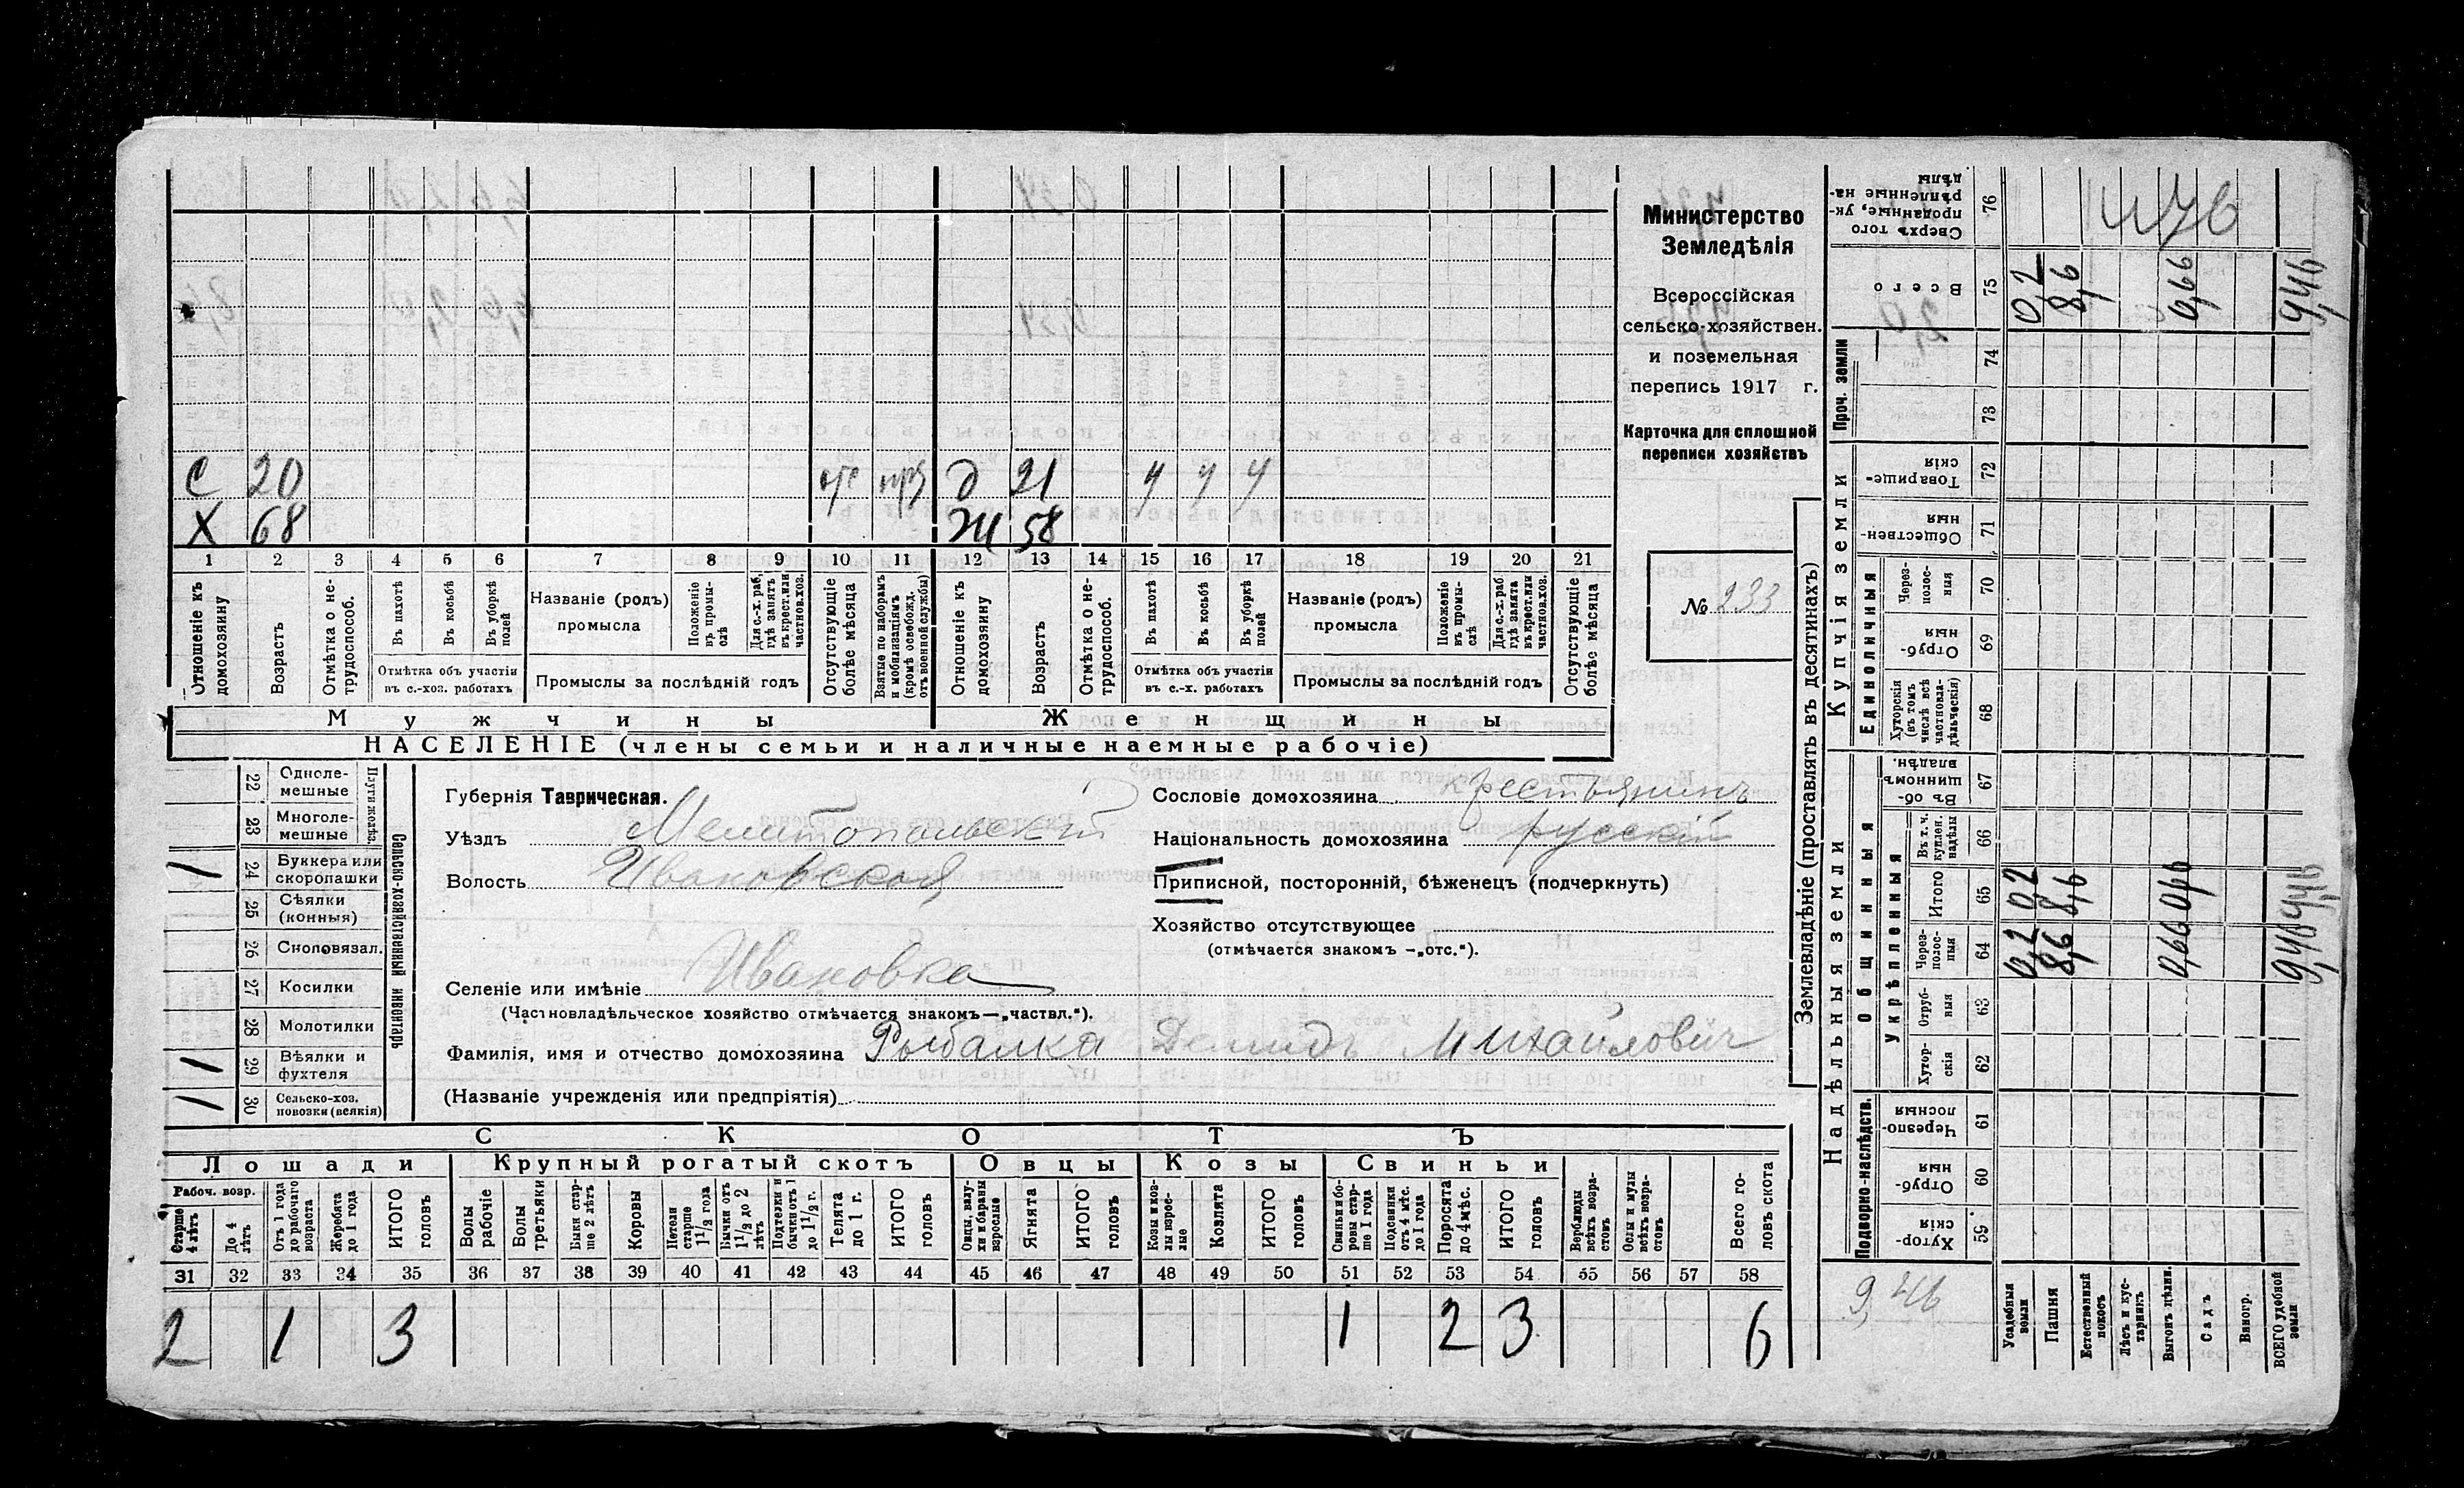 Министерство
Земледѣлія
Всероссійская
сельско-хозяйствен.
и поземельная
перепись 1917 г.
Карточка для сплошной
переписи хозяйствъ
№ 233
С 20 отс д 21 ч ч ч
Х 68 Ж 58
1 2 3 4 5 6 7 8 9 10 11 12 13 14 15 16 17 18 19 20 21
Отношеніе къ домохозяину
Возрастъ
Отмѣтка о не-трудоспособ.
Въ пахотѣ
Въ косьбѣ
Въ уборкѣ полей
Отмѣтка объ участіи
въ с.-хоз. работахъ
Названіе (родъ)
промысла
Положеніе въ промы-слѣ
Для с.-х. раб. гдѣ занятъ въ крест. или частнов. хоз.
Промыслы за послѣдній годъ
Отсутствующіе болѣе мѣсяца
Взятые по наборамъ и мобилизаціямъ (кромѣ освобожд. отъ военной службы)
Отношеніе къ домохозяину
Возрастъ
Отмѣтка о не-трудоспособ.
Въ пахотѣ
Въ косьбѣ
Въ уборкѣ полей
Отмѣтка объ участіи
въ с.-х. работахъ
Названіе (родъ)
промысла
Положеніе въ промы-слѣ
Для с.-х. раб. гдѣ занята въ крест. или частнов. хоз.
Промыслы за послѣдній годъ
Отсутствующіе болѣе мѣсяца
Мужчины Женщины
НАСЕЛЕНІЕ (члены семьи и наличные наемные рабочіе)
Сельско-хозяйственный инвентарь
22 Одноле-мешные
23 Многоле-мешные
1 24 Буккера или скоропашки
25 Сѣялки (конныя)
26 Сноповязал.
27 Косилки
28 Молотилки
1 29 Вѣялки и фухтеля
1 30 Сельско-хоз. повозки (всякія)
Губернія Таврическая.
Уѣздъ Мелитопольскій
Волость Ивановская
Селеніе или имѣніе Ивановка
(Частновладѣльческое хозяйство отмѣчается знакомъ—„частвл.“).
Фамилія, имя и отчество домохозяина Рыбалка Демидъ Михайловичъ
(Названіе учрежденія или предпріятія)
Сословіе домохозяина крестьянинъ
Національность домохозяина русскій
Приписной, посторонній, бѣженецъ (подчеркнуть)
Хозяйство отсутствующее
(отмѣчается знакомъ —„отс.“).
СКОТЪ
Лошади Крупный рогатый скотъ Овцы Козы Свиньи
Рабоч. возр.
Старше 4 лѣтъ
До 4 лѣтъ
Отъ 1 года до рабочаго возраста
Жеребята до 1 года
ИТОГО головъ
Волы рабочіе
Волы третьяки
Быки стар-ше 2 лѣтъ
Коровы
Нетели старше 1 1/2 года
Бычки отъ 1 1/2 до 2 лѣтъ
Подтелки и бычки отъ 1 до 1 1/2 г.
Телята до 1 г.
ИТОГО головъ
Овцы, валу-хи и бараны взрослые
Ягнята
ИТОГО головъ
Козы и коз-лы взрос-лые
Козлята
ИТОГО головъ
Свиньи и бо-ровы стар-ше 1 года
Подсвинки отъ 4 мѣс. до 1 года
Поросята до 4 мѣс.
ИТОГО головъ
Верблюды всѣхъ возра-стовъ
Ослы и мулы всѣхъ возра-стовъ
Всего го-ловъ скота
31 32 33 34 35 36 37 38 39 40 41 42 43 44 45 46 47 48 49 50 51 52 53 54 55 56 57 58
2 1 3 1 2 3 6
Землевладѣніе (проставлять въ десятинахъ)
Купчія земли
Надѣльныя земли
Проч. земли
Единоличныя
Общинныя
Укрѣпленныя
Подворно-наслѣдств.
76 Сверхъ того проданные, ук-рѣпленные на-дѣлы
75 Всего 0,2 8,6 0,66 9,46
74
73
72 Товарище-скія
71 Обществен-ныя
70 Через-полос-ныя
69 Отруб-ныя
68 Хуторскія (въ томъ числѣ всѣ частновла-дѣльческія)
67 Въ об-щинномъ владѣн.
66 Въ т. ч. куплен. надѣлы
65 Итого 0,2 8,6 9,46
64 Через-полос-ныя 0,2 8,6 0,66 9,46
63 Отруб-ныя
62 Хутор-скія
61 Черезпо-лосныя
60 Отруб-ныя
59 Хутор-скія
9,46
Усадебныя земли
Пашня
Естественный покосъ
Лѣсъ и кус-тарникъ
Выгонъ дѣлим.
Садъ
Виногр.
ВСЕГО удобной земли